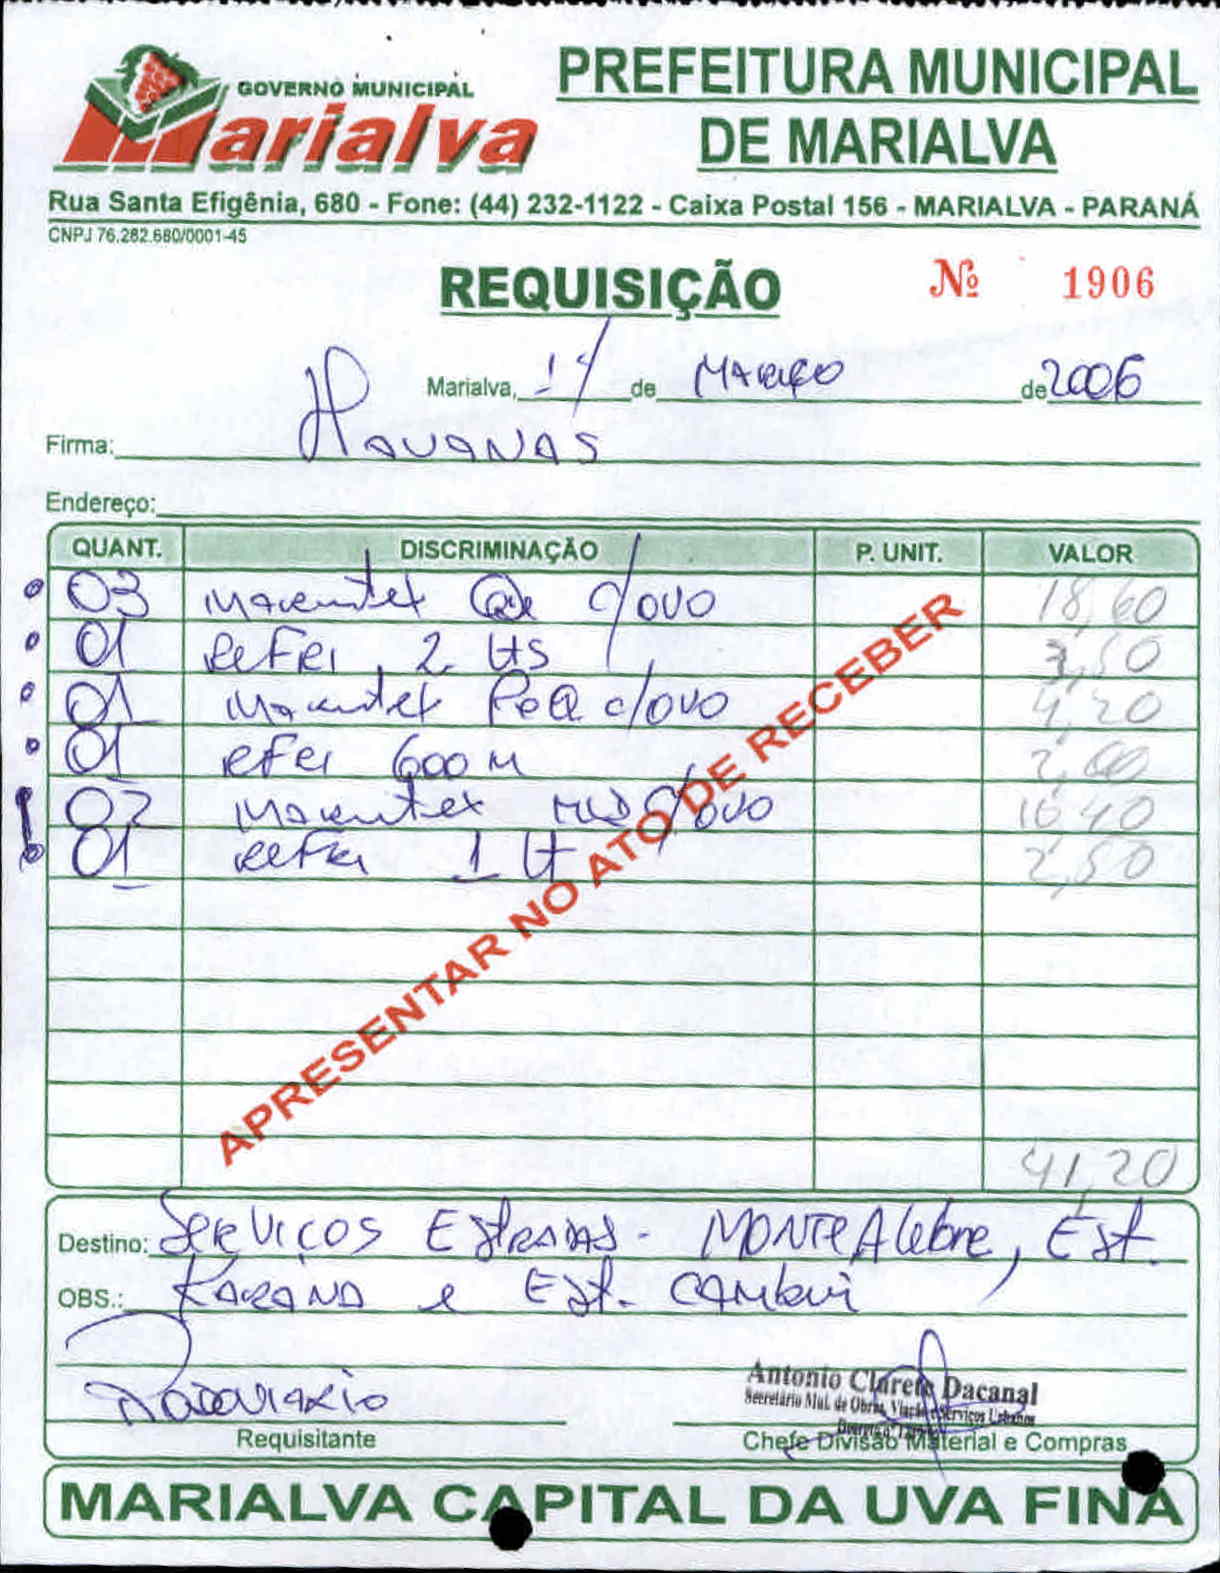 GOVERNO MUNICIPAL
Marialva
PREFEITURA MUNICIPAL
DE MARIALVA
Rua Santa Efigênia, 680 - Fone: (44) 232-1122 - Caixa Postal 156 - MARIALVA - PARANÁ
CNPJ 76.282.680/0001-45
REQUISIÇÃO Nº 1906
Marialva, 14 de MARÇO de 2006
Firma: HAVANAS
Endereço:
QUANT. DISCRIMINAÇÃO P. UNIT. VALOR
03 Marmitex c/ovo 18,60
01 Refri 2 Lts 3,50
01 Marmitex Peq c/ovo 4,20
01 Refri 600 M 2,00
02 Marmitex c/ovo 10,40
01 Refri 1 Lt 2,50
APRESENTAR NO ATO DE RECEBER
41,20
Destino: Serviços Estradas - MONTE Alegre, Est.
OBS.: e Est. Cambui
Requisitante
Antonio Clarete Dacanal
Secretário Mul. de Obras, Viação e Serviços Urbanos
Chefe Divisão Material e Compras
MARIALVA CAPITAL DA UVA FINA